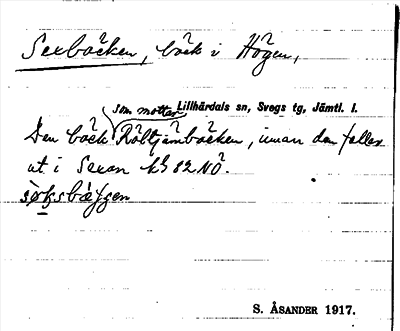 Sexbäcken, bäck i Högen,
som mottar Lillhärdals sn, Svegs tg, Jämtl. l.
Den bäck Råbtjärnbäcken, innan den faller
ut i Sexan k 82 NÖ.
S. ÅSANDER 1917.